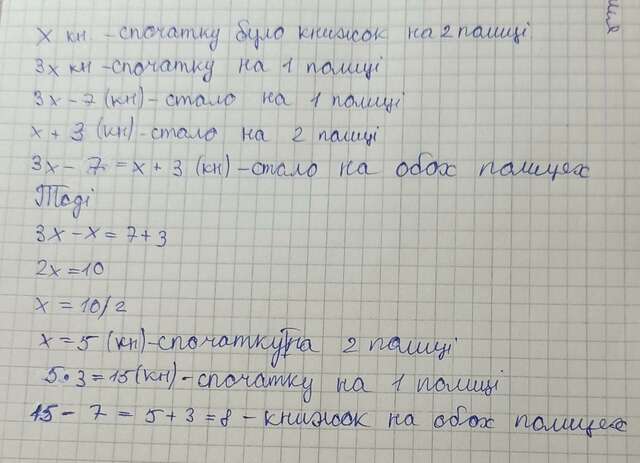 x кн - спочатку було книжок на 2 полиці
3x кн - спочатку на 1 полиці
3x - 7 (кн) - стало на 1 полиці
x + 3 (кн) - стало на 2 полиці
3x - 7 = x + 3 (кн) - стало на обох полицех
Тоді
3x - x = 7 + 3
2x = 10
x = 10/2
x = 5 (кн) - спочатку на 2 полиці
5 • 3 = 15 (кн) - спочатку на 1 полиці
15 - 7 = 5 + 3 = 8 - книжок на обох полицех